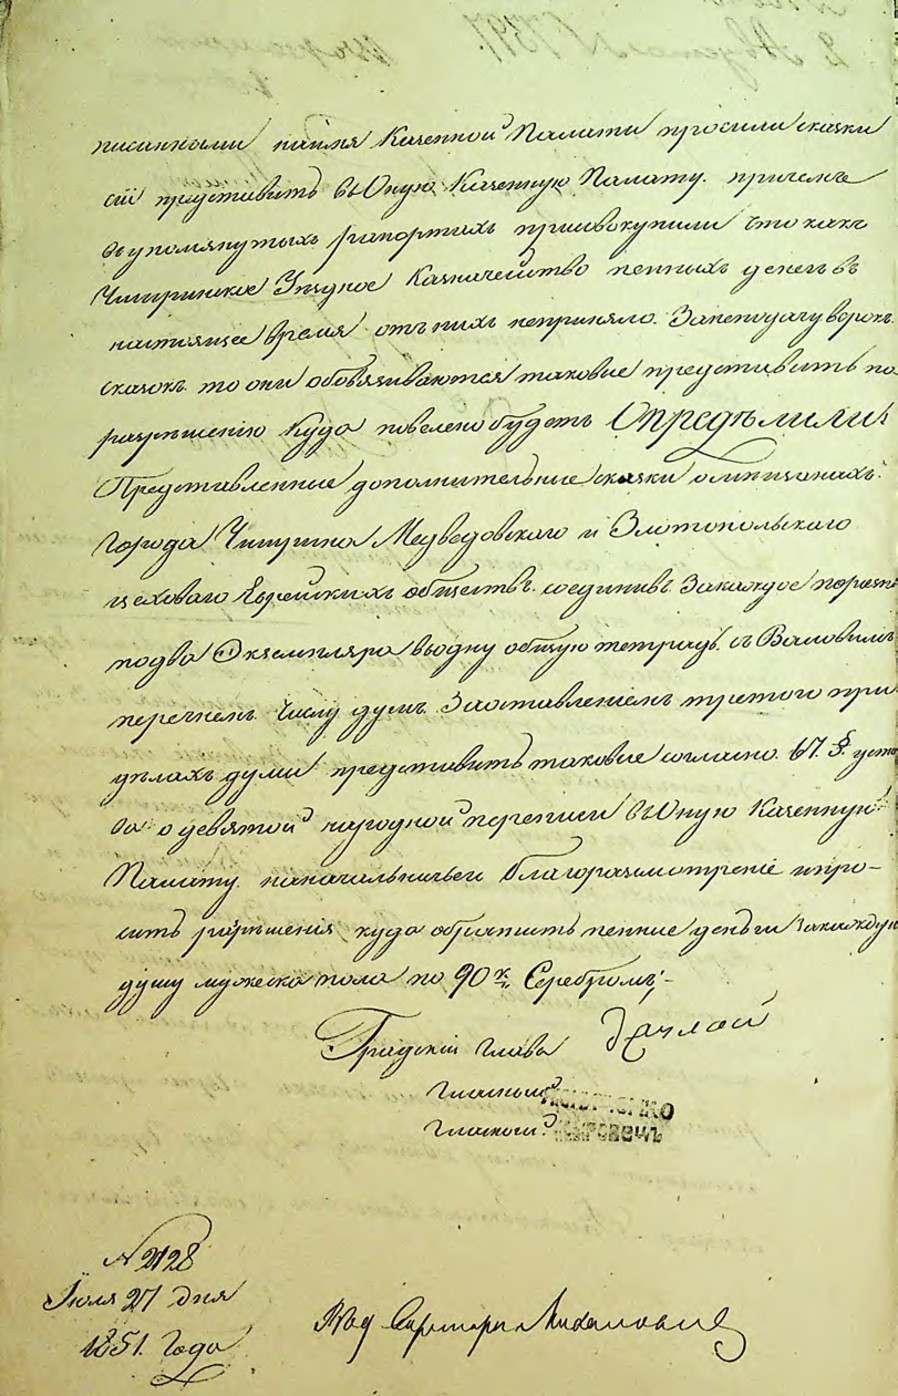 писанными наймя Казенной Палаты просили сказки
сіи представить въ Оную Казенную Палату. причемъ
въ упомянутыхъ рапортахъ присовокупили что какъ
Чигиринское Уездное Казначейство пенныхъ денегъ въ
настоящее время отъ нихъ неприняло. Занеподачу ворокъ
сказокъ то они обовязиваются таковые представить по
разрѣшенію куда повелено будетъ Опредѣлили:
Представленные дополнительные сказки о мѣщанахъ
города Чигирина Медведовскаго и Златопольскаго
цеховаго Еврейскихъ обществъ. соединивъ Закаждое порозн
подва Экземпляра водну общую тетрадь. съ Валовымъ
перечнемъ Числу душъ. Заоставленіемъ третого при
делахъ думи представить таковые согласно. 67. §. уста
ва о девятой народной переписи въ Оную Казенную
Палату. наначальничьеи благоразсмотреніе ипро-
сить разрѣшенія, куда обратить пенные деньги Закаждую
душу мужеска пола по 90 к. Серебромъ;-
Градскій Глава
Гласный
Гласный
N 2128
Іюля 27 дня
1851. Года